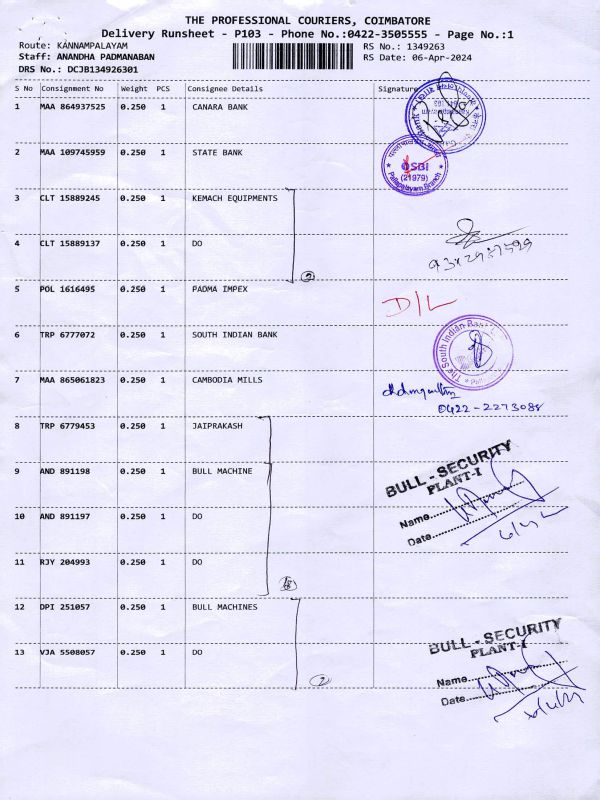 THE PROFESSIONAL COURIERS, COIMBATORE
Delivery Runsheet - P103 - Phone No.:0422-3505555 - Page No.:1
Route: KANNAMPALAYAM
RS No.: 1349263
Staff: ANANDHA PADMANABAN
RS Date: 06-Apr-2024
DRS No.: DCJB134926301
S No Consignment No Weight PCS Consignee Details Signature
1 MAA 864937525 0.250 1 CANARA BANK
2 MAA 109745959 0.250 1 STATE BANK
SBI
(21979)
Pallapalayam Branch
3 CLT 15889245 0.250 1 KEMACH EQUIPMENTS
4 CLT 15889137 0.250 1 DO
2
5 POL 1616495 0.250 1 PADMA IMPEX
D/L
6 TRP 6777072 0.250 1 SOUTH INDIAN BANK
The South Indian Bank
7 MAA 865061823 0.250 1 CAMBODIA MILLS
0422-2273088
8 TRP 6779453 0.250 1 JAIPRAKASH
9 AND 891198 0.250 1 BULL MACHINE
BULL - SECURITY
PLANT-I
10 AND 891197 0.250 1 DO
Name
Date
11 RJY 204993 0.250 1 DO
12 DPI 251057 0.250 1 BULL MACHINES
BULL - SECURITY
PLANT-I
13 VJA 5508057 0.250 1 DO
2
Name
Date